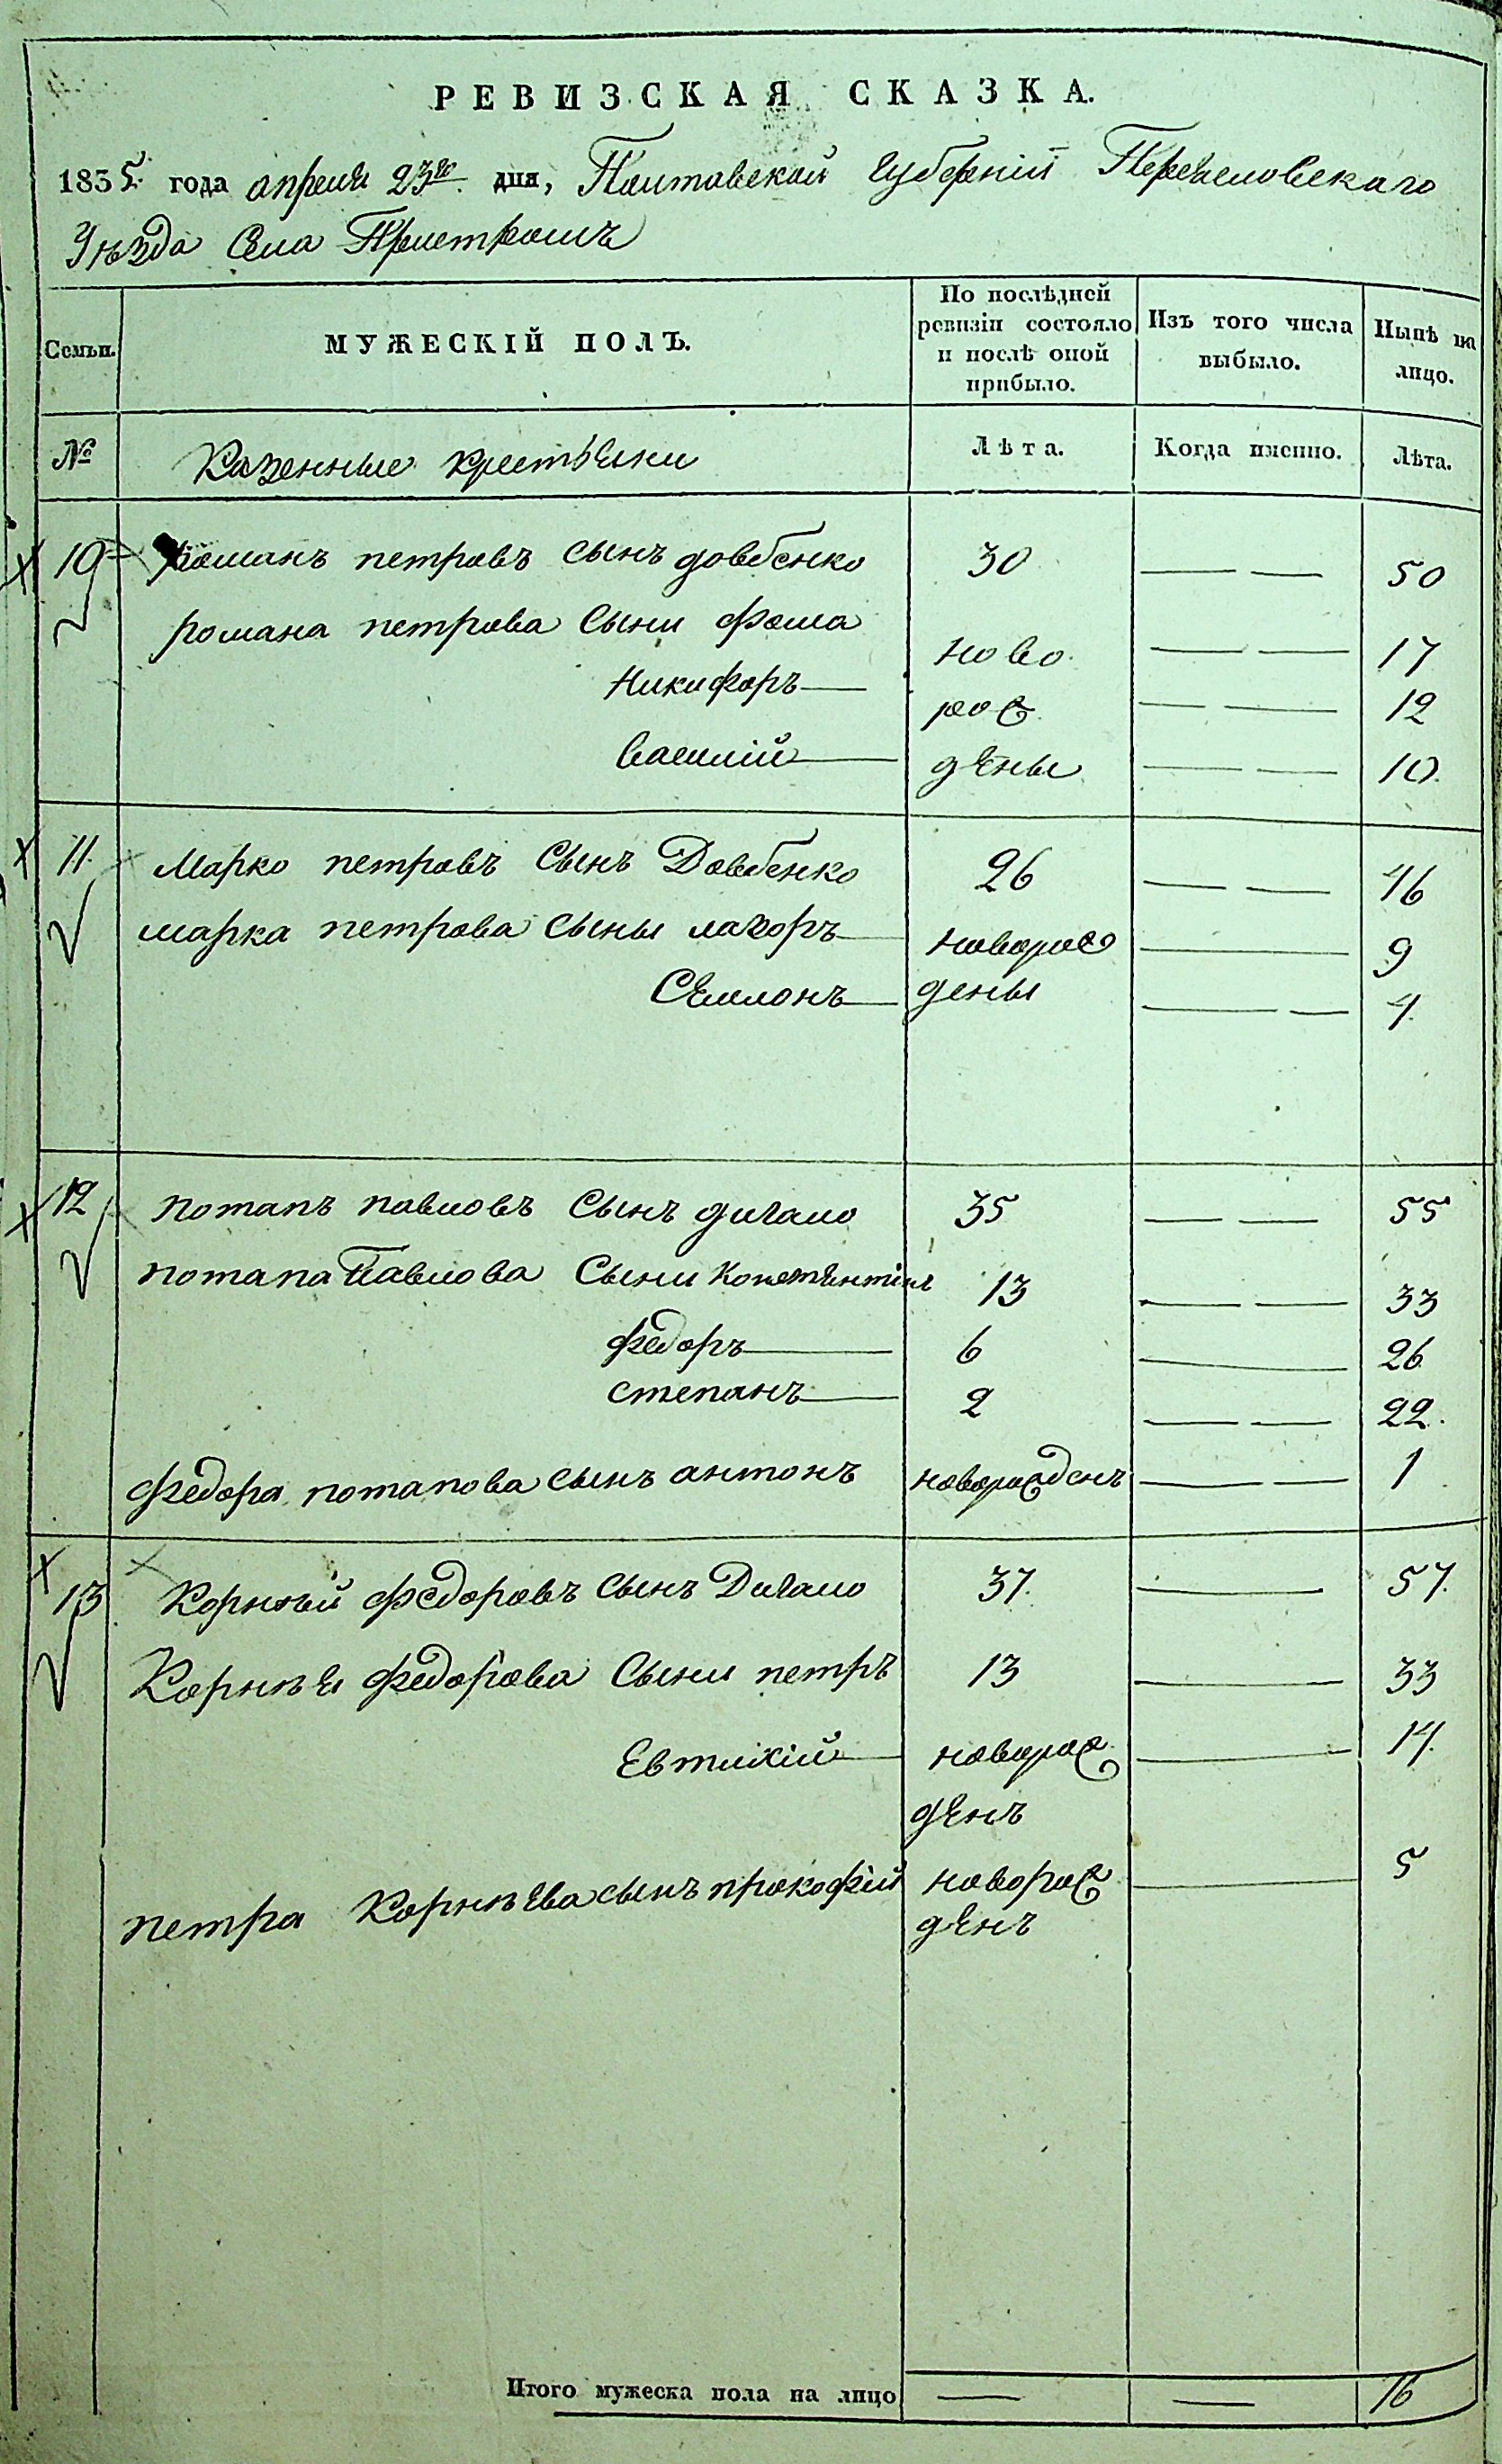 РЕВИЗСКАЯ СКАЗКА.
1835 года апреля 23го дня, Полтавской губерніи Переяславскаго
Уѣзда Села Пристромъ
Семьи.
МУЖЕСКІЙ ПОЛЪ.
По послѣдней ревизіи состояло и послѣ оной прибыло.
Изъ того числа выбыло.
Нынѣ на лицо.
№ Казенные крестьяни Лѣта. Когда именно. Лѣта.
10 Романъ петровъ сынъ довбенко 30 — — 50
романа петрова сыни фома ново — — 17
Никифоръ — рож — — 12
василій — дены — — 10.
11. Марко петровъ сынъ Довбенко 26 — — 46
марка петрова сыны лазоръ — новорож — 9
Семионъ — дены — — 4.
12 потапъ павловъ сынъ дигало 35 — — 55
потапа Павлова Сыни Констянтінъ 13 — — 33
федоръ — 6 — 26
степанъ — 2 — — 22.
федора потапова сынъ антонъ новорожденъ — — 1
13 Корнѣй федоровъ сынъ Дигало 37. — 57.
Корнѣя федорова Сыни петръ 13 — 33
Евтихій — новорож — 14.
денъ
петра Корнѣева сынъ прокофій новорож — 5
денъ
Итого мужеска пола на лицо — — 16